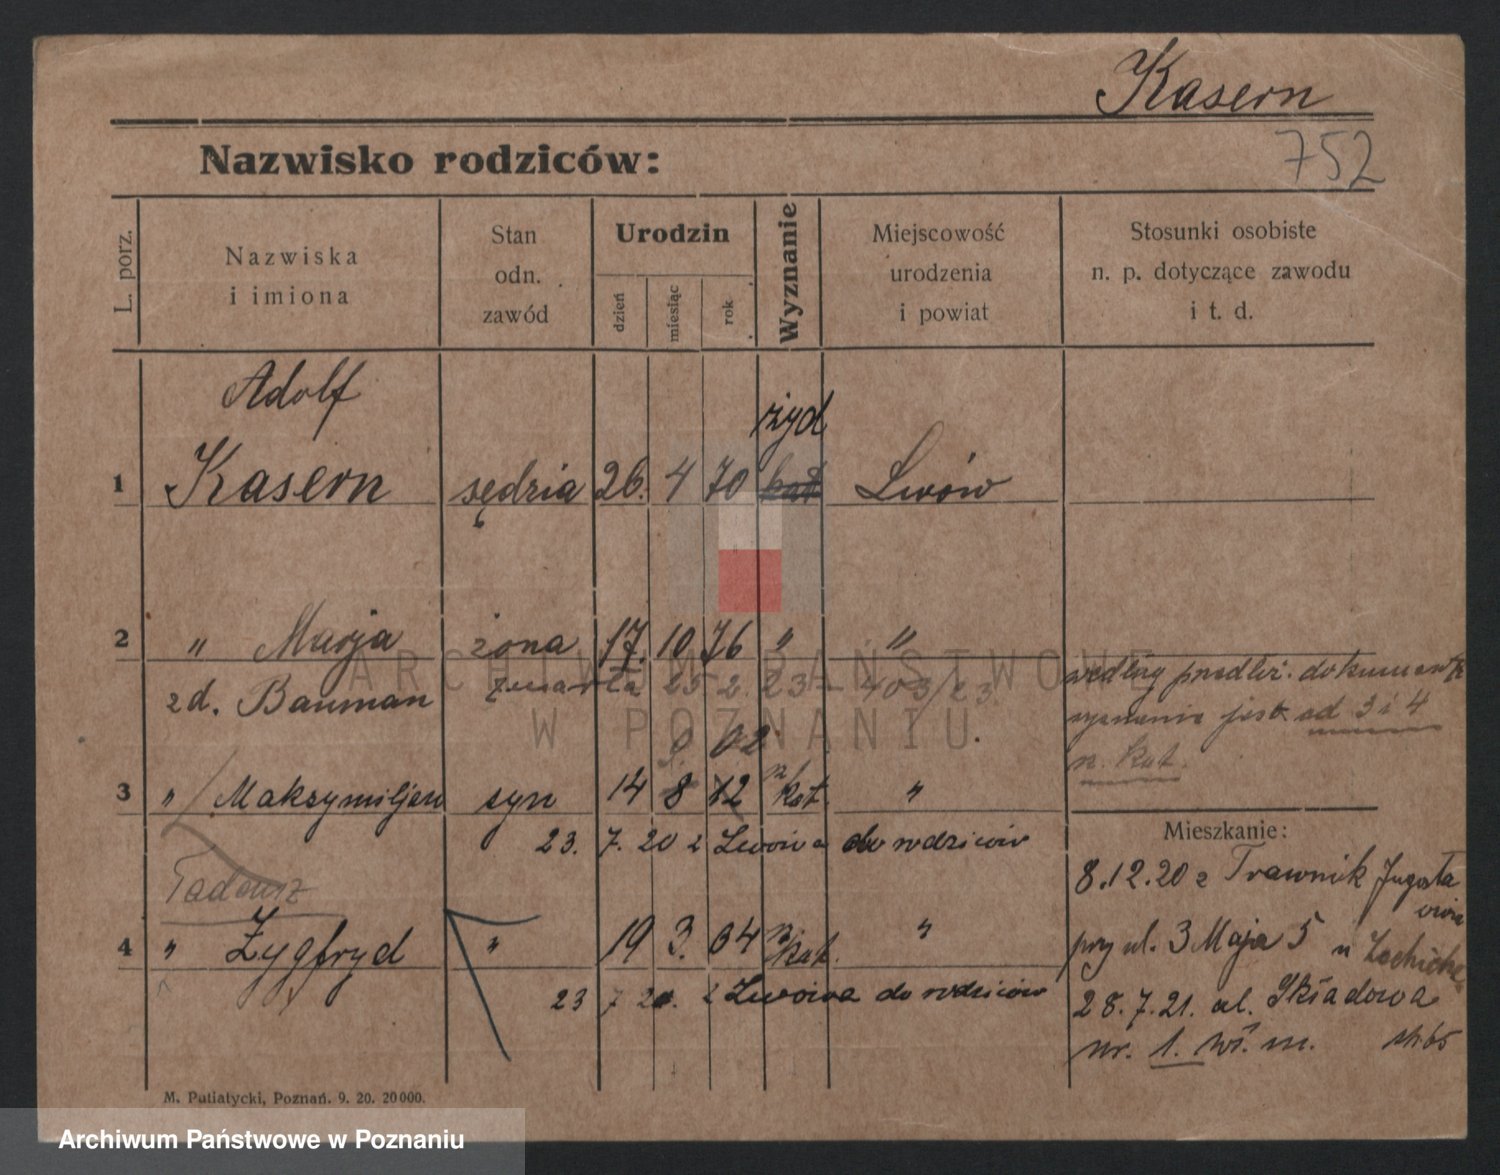 Kasern
752
Nazwisko rodziców:
L. porz.
Nazwiska
i imiona
Stan
odn.
zawód
Urodzin
dzień
miesiąc
rok
Wyznanie
Miejscowość
urodzenia
i powiat
Stosunki osobiste
n. p. dotyczące zawodu
i t. d.
Adolf
żyd
1 Kasern sędzia 26. 4 70 kat Lwów
2 " Marja żona 17. 10 76 " "
zd. Bauman zmarła 25 2. 23 - 403/23
według przedłż. dokumentów
wyznanie jest od 3 i 4
rz. kat.
9 02
3 " Maksymiljan syn 14 8 12 rz/kat. "
23. 7. 20 z Lwowa do rodziców
Tadeusz
4 " Zygfryd " 19 3. 04 rz/kat. "
23 7 20. z Lwowa do rodziców
Mieszkanie:
8.12.20 z Trawnik Jugosła
wia
przy ul. 3 Maja 5 u
28.7.21. ul. Składowa
nr. 1. wł. m.
M. Putiatycki, Poznań. 9. 20. 20000.
ARCHIWUM PAŃSTWOWE
W POZNANIU
Archiwum Państwowe w Poznaniu